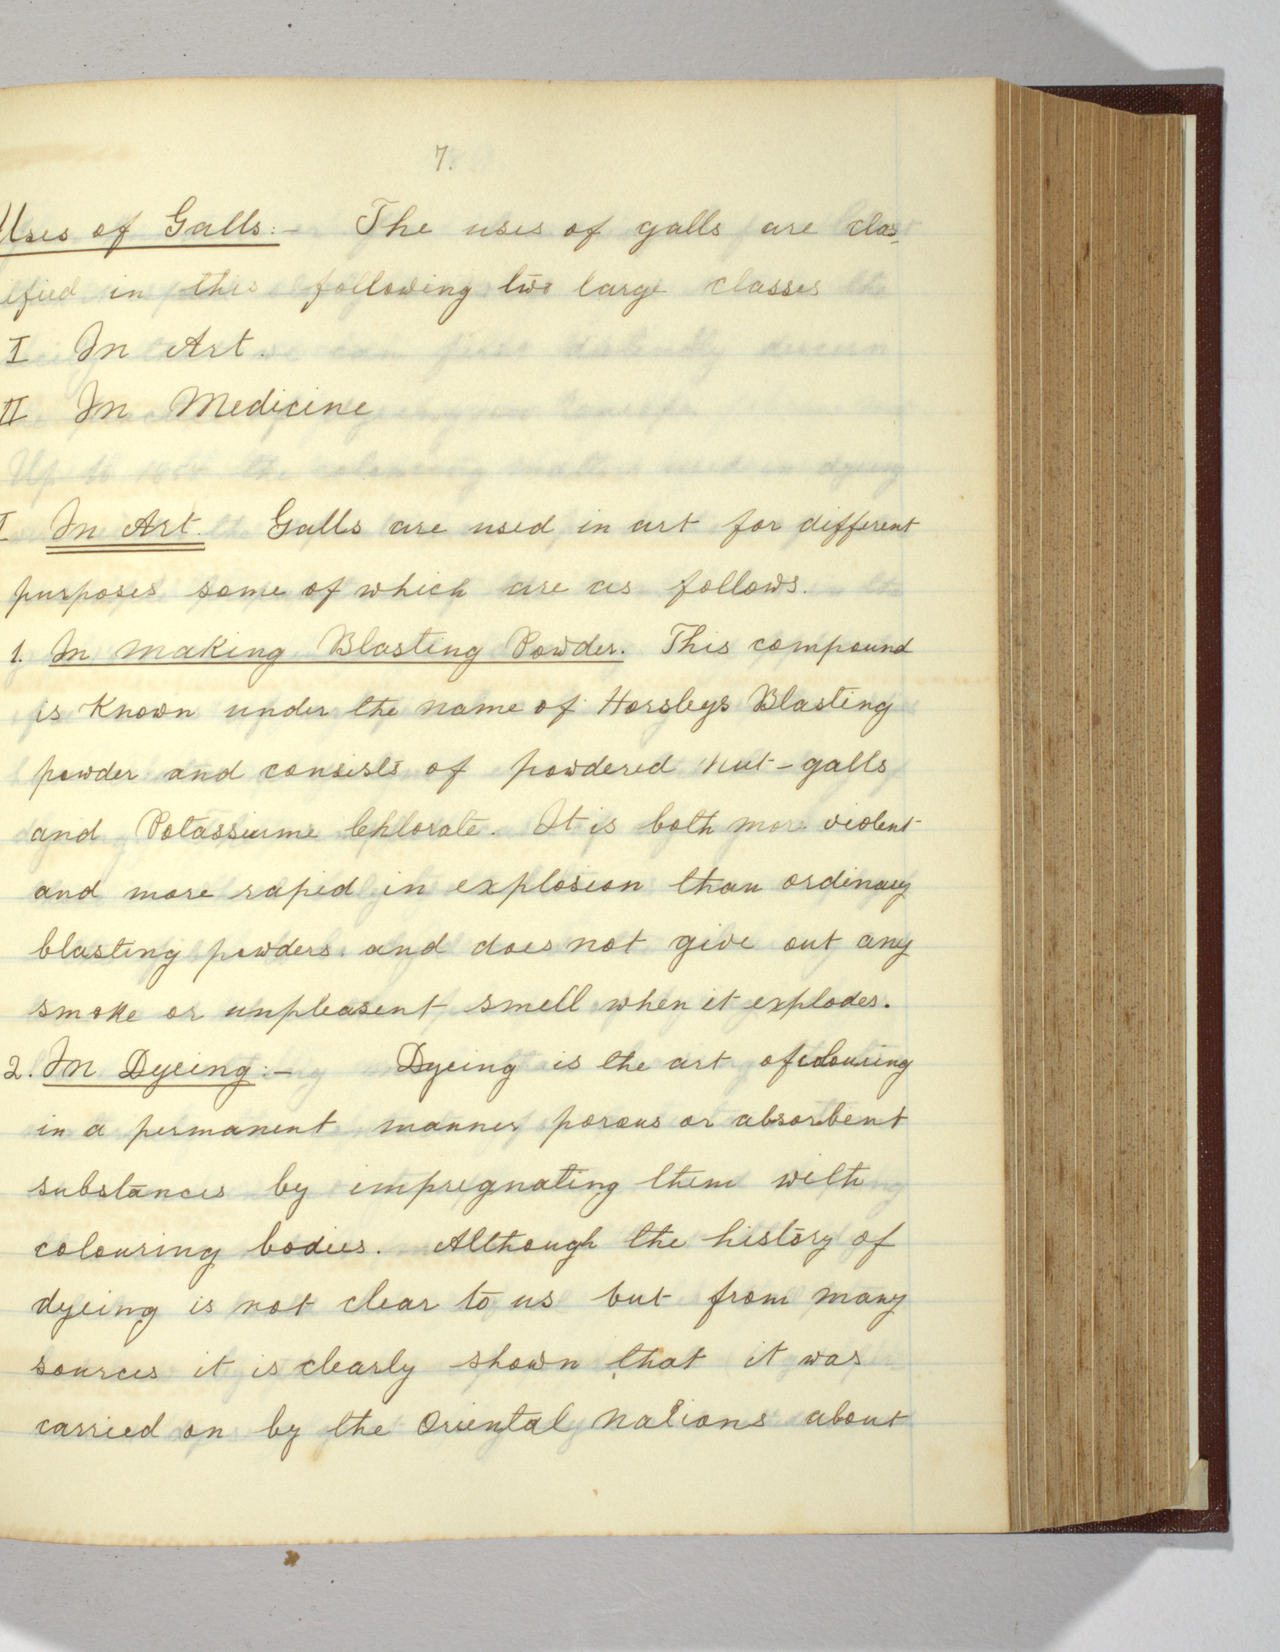 7.
Uses of Galls:- The uses of galls are clas-
ified in this following two large classes
I In Art.
II In Medicine
I In Art. Galls are used in art for different
purposes some of which are as follows.
1. In making Blasting Powder. This compound
is Known under the name of Horsleys Blasting
powder and consists of powdered nut-galls
and Potassiume Chlorate. It is both more violent
and more rapid in explosion than ordinary
blasting powders and does not give out any
smoke or unpleasent smell when it explodes.
2. In Dyeing:- Dyeing is the art of colouring
in a permanent manner porous or absorbent
substances by impregnating them with
colouring bodies. Although the history of
dyeing is not clear to us but from many
sources it is clearly shown that it was
carried on by the Oriental Nations about